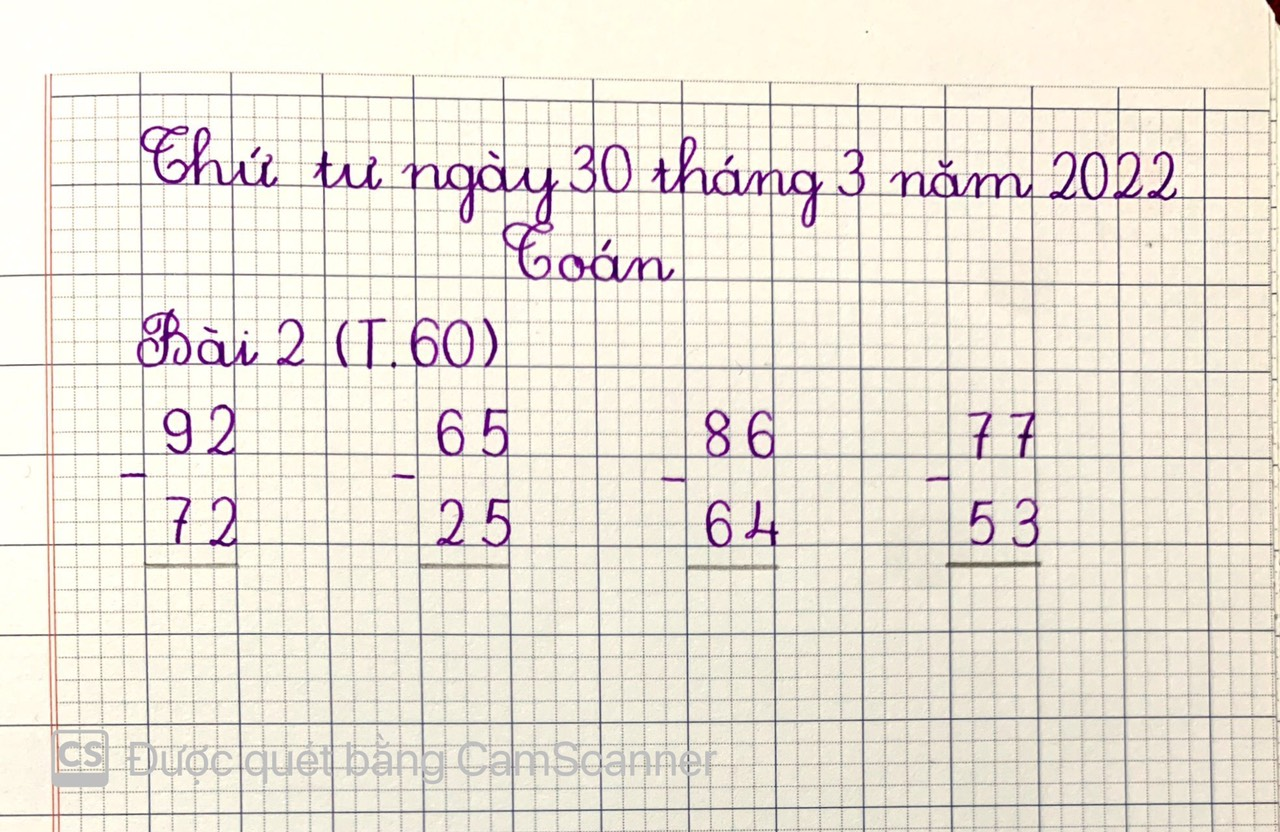 Thứ tư ngày 30 tháng 3 năm 2022
Toán
Bài 2 (T.60)
92 65 86 77
- - - -
72 25 64 53
CS Được quét bằng CamScanner